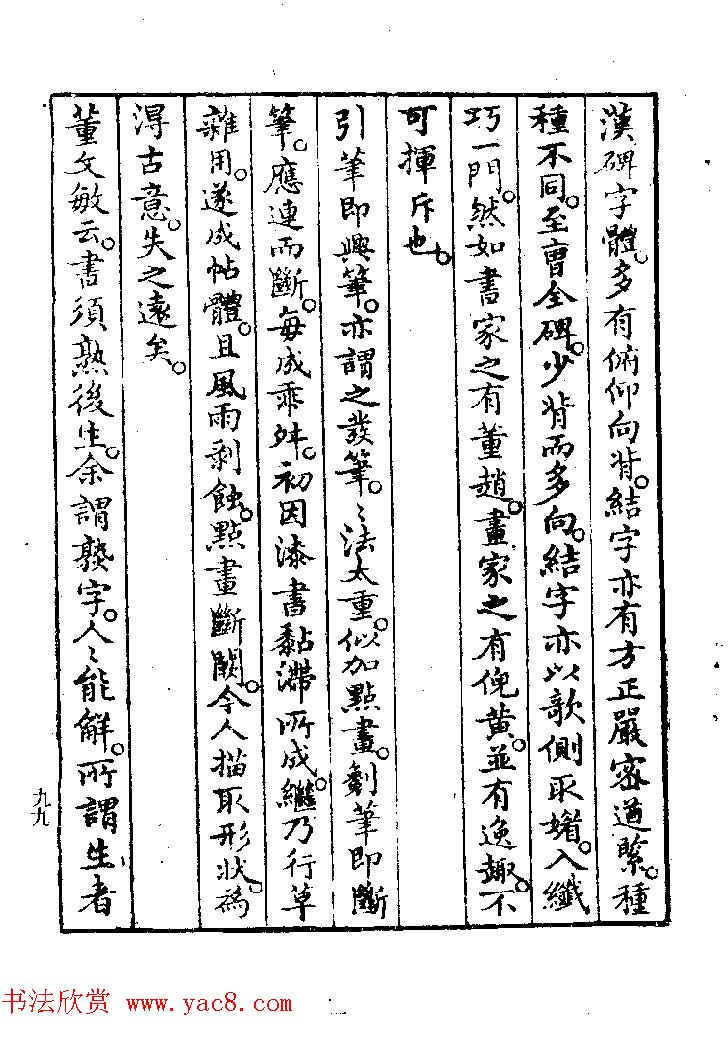 漢碑字體。多有俯仰向背。結字亦有方正嚴密遒緊。種
種不同。至曹全碑。少背而多向。結字亦以欹側取媚。入纖
巧一門。然如書家之有董趙。畫家之有倪黄。並有逸趣。不
可揮斥也。
引筆即興筆。亦謂之發筆。〻法太重。似加點畫。劃筆即斷
筆。應連而斷。每成乖舛。初因漆書黏滯所成。繼乃行草
雜用。遂成帖體。且風雨剥蝕。點畫斷闕。今人描取形狀。為
得古意。失之遠矣。
董文敏云。書須熟後生。余謂熟字。人〻能解。所謂生者
九九
书法欣赏 www.yac8.com